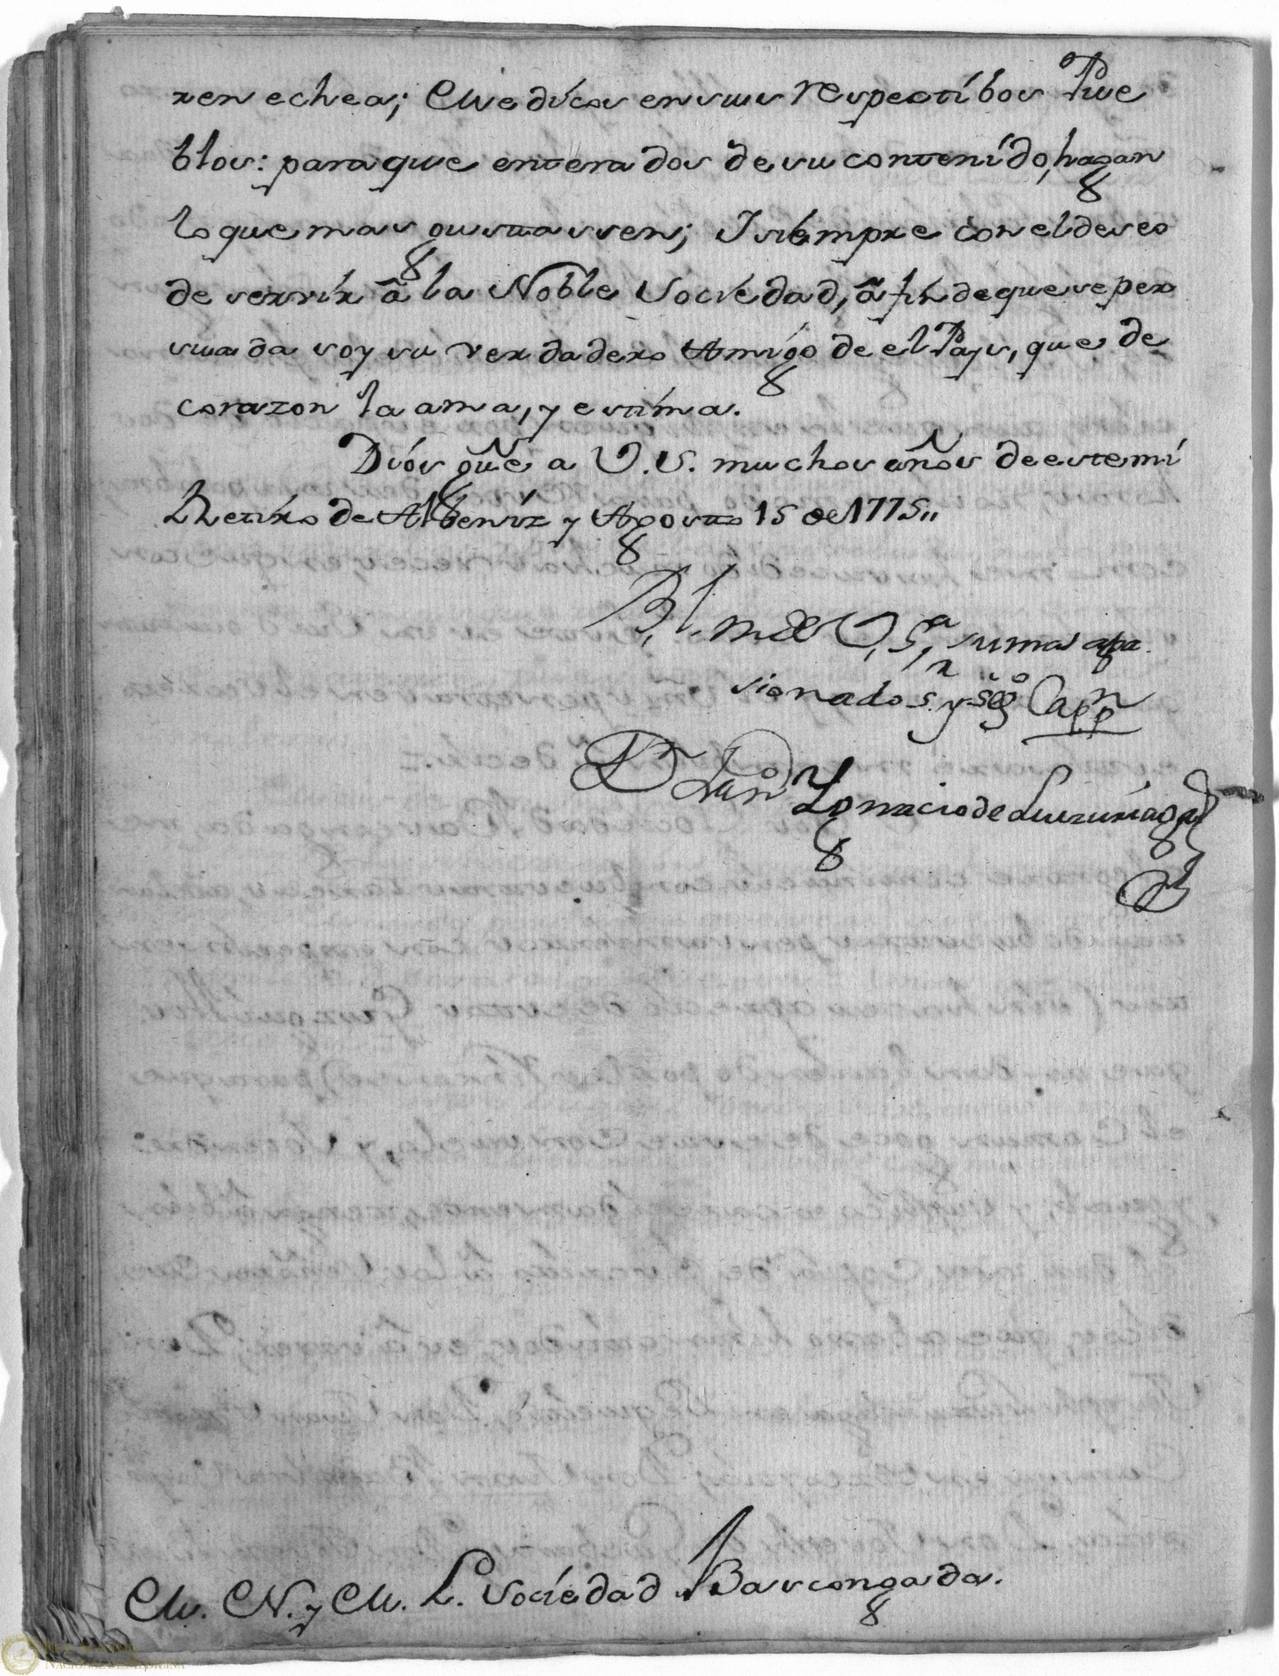 renechea; Medicos en sus respectibos Pue
blos: para que enterados de su contenído, hagan
lo que mas gustassen; Y siémpre con el deseo
de servír â la Noble Sociédad, â fín de que se per
suada soy su verdadero Amígo de el Pays, que de
corazon la ama, y estíma.
Díos gũe a V.S. muchos años de este mi
Retíro de Albeníz y Agosto 15 de 1775,,
B. l. m. de V,S,ª su mas apa
sionado S.r y Seg.º Cap.n
D.n Juan Ygnacio de Luzuriaga
M. N. y M. L. Sociédad Bascongada.